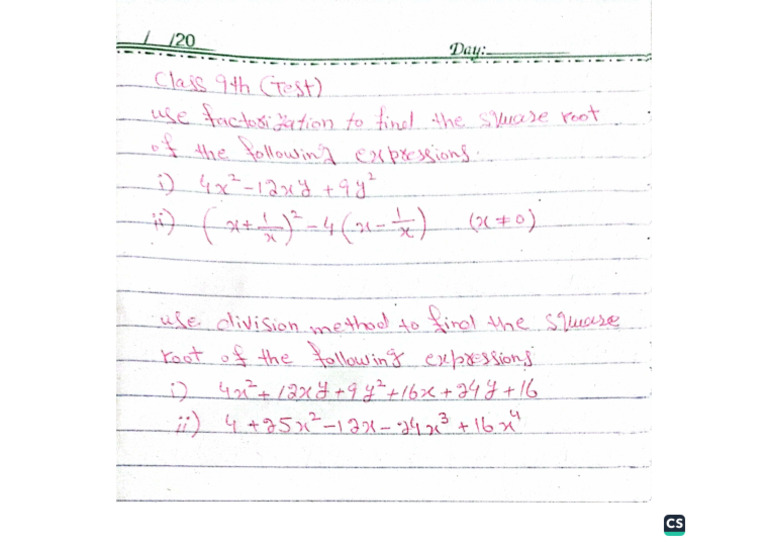 / /20
Day:
Class 9th (Test)
use factorization to find the square root
of the following expressions.
i) 4x² - 12xy + 9y²
ii) (x + 1/x)² - 4(x - 1/x) (x ≠ 0)
use division method to find the square
root of the following expressions
i) 4x² + 12xy + 9y² + 16x + 24y + 16
ii) 4 + 25x² - 12x - 24x³ + 16x⁴
CS